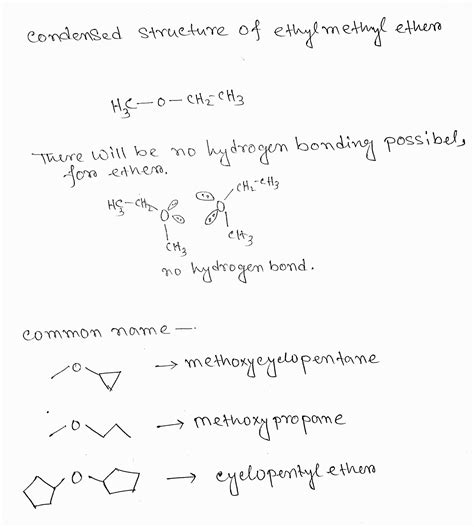 condensed structure of ethylmethyl ether
H₃C—O—CH₂-CH₃
There will be no hydrogen bonding possibel,
for ether.
H₃C-CH₂ O CH₃
CH₂-CH₃ O CH₃
no hydrogen bond.
common name —
O → methoxycyclopentane
O → methoxypropane
O → cyclopentyl ether